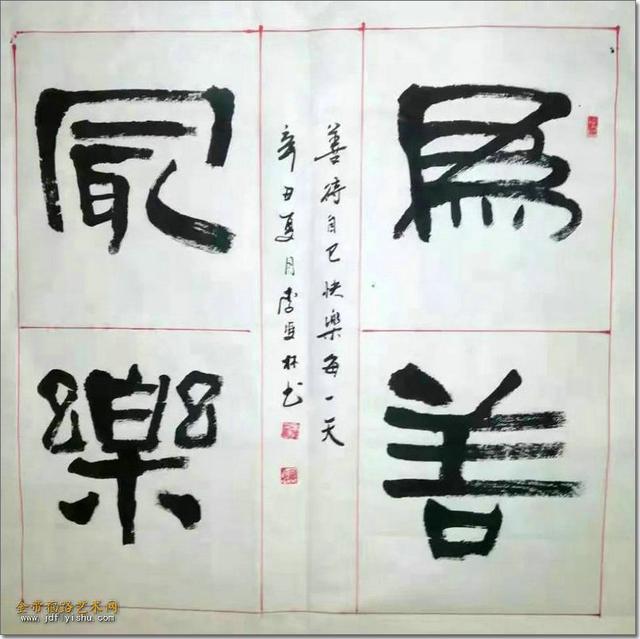 為善
最樂
善待自己快樂每一天
辛丑夏月李亚林书
金帝福路艺术网
www.jdf-yishu.com